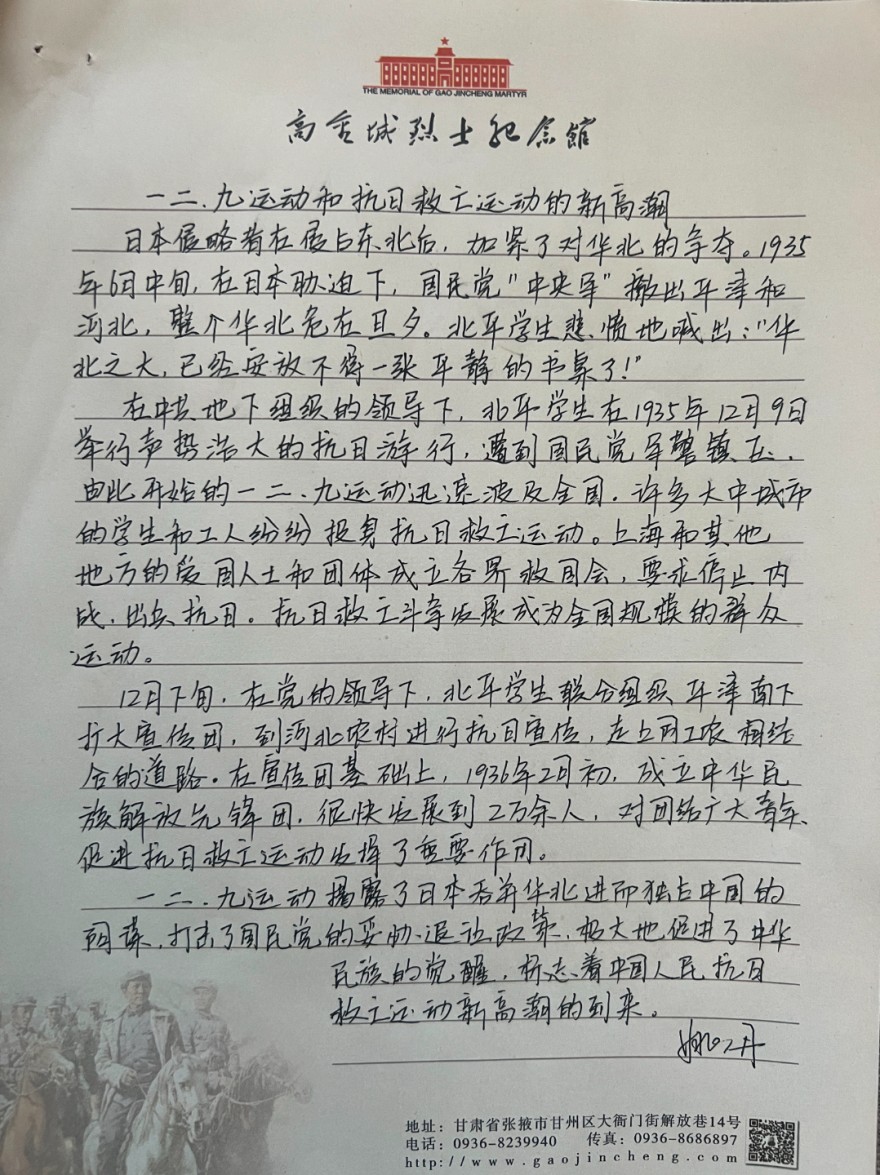 THE MEMORIAL OF GAO JINCHENG MARTYR
高金城烈士纪念馆
一二.九运动和抗日救亡运动的新高潮
日本侵略者在侵占东北后，加紧了对华北的争夺。1935
年6日中旬，在日本胁迫下，国民党"中央军"撤出平津和
河北，整个华北危在旦夕。北平学生悲愤地喊出："华
北之大，已经安放不得一张平静的书桌了！"
在中共地下组织的领导下，北平学生在1935年12月9日
举行声势浩大的抗日游行，遭到国民党军警镇压.
由此开始的一二.九运动迅速波及全国.许多大中城市
的学生和工人纷纷投身抗日救亡运动。上海和其他
地方的爱国人士和团体成立各界救国会，要求停止内
战.出兵抗日。抗日救亡斗争发展成为全国规模的群众
运动。
12月下旬.在党的领导下，北平学生联合组织平津南下
扩大宣传团，到河北农村进行抗日宣传，走上同工农相结
合的道路。在宣传团基础上，1936年2月初.成立中华民
族解放先锋团，很快发展到2万余人，对团结广大青年、
促进抗日救亡运动发挥了重要作用。
一二.九运动揭露了日本吞并华北进而独占中国的
阴谋，打击了国民党的妥协退让政策，极大地促进了中华
民族的觉醒，标志着中国人民抗日
救亡运动新高潮的到来。
地址：甘肃省张掖市甘州区大衙门街解放巷14号
电话：0936-8239940 传真：0936-8686897
http://www.gaojincheng.com